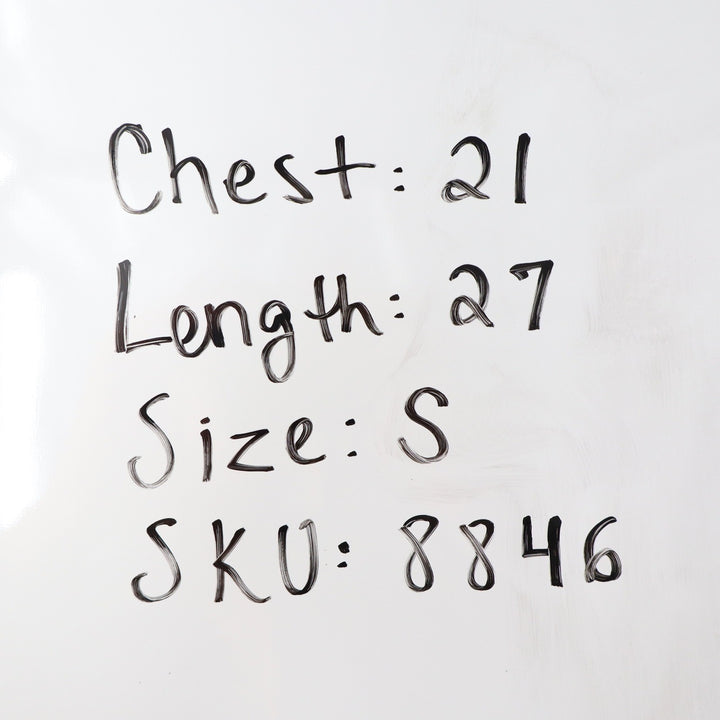 Chest: 21
Length: 27
Size: S
SKU: 8846